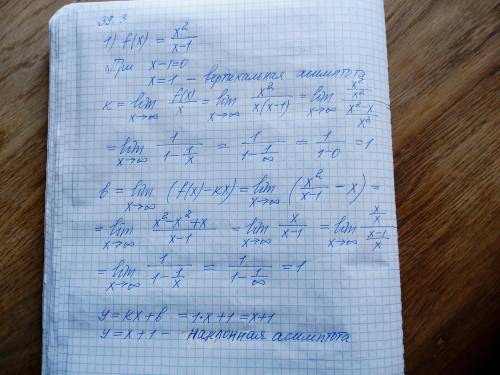 39.3.
1) f(x) = x²/(x-1)
При x-1=0
x=1 - вертикальная асимптота
k = lim x→∞ f(x)/x = lim x→∞ x²/(x(x-1)) = lim x→∞ (x²/x²)/((x²-x)/x²)
= lim x→∞ 1/(1-1/x) = 1/(1-1/∞) = 1/(1-0) = 1
b = lim x→∞ (f(x)-kx) = lim x→∞ (x²/(x-1) - x) =
= lim x→∞ (x²-x²+x)/(x-1) = lim x→∞ x/(x-1) = lim x→∞ (x/x)/((x-1)/x)
= lim x→∞ 1/(1-1/x) = 1/(1-1/∞) = 1
y = kx+b = 1·x+1 = x+1
y = x+1 - наклонная асимптота